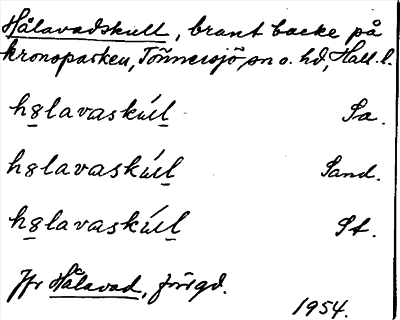 Hålavadskull, brant backe på
kronoparken, Tönnersjö sn o. hd, Hall. l.
h8lavaskúll Sa.
h8lavaskúll Sand.
h8lavaskúll St.
Jfr Hålavad, föregd.
1954.